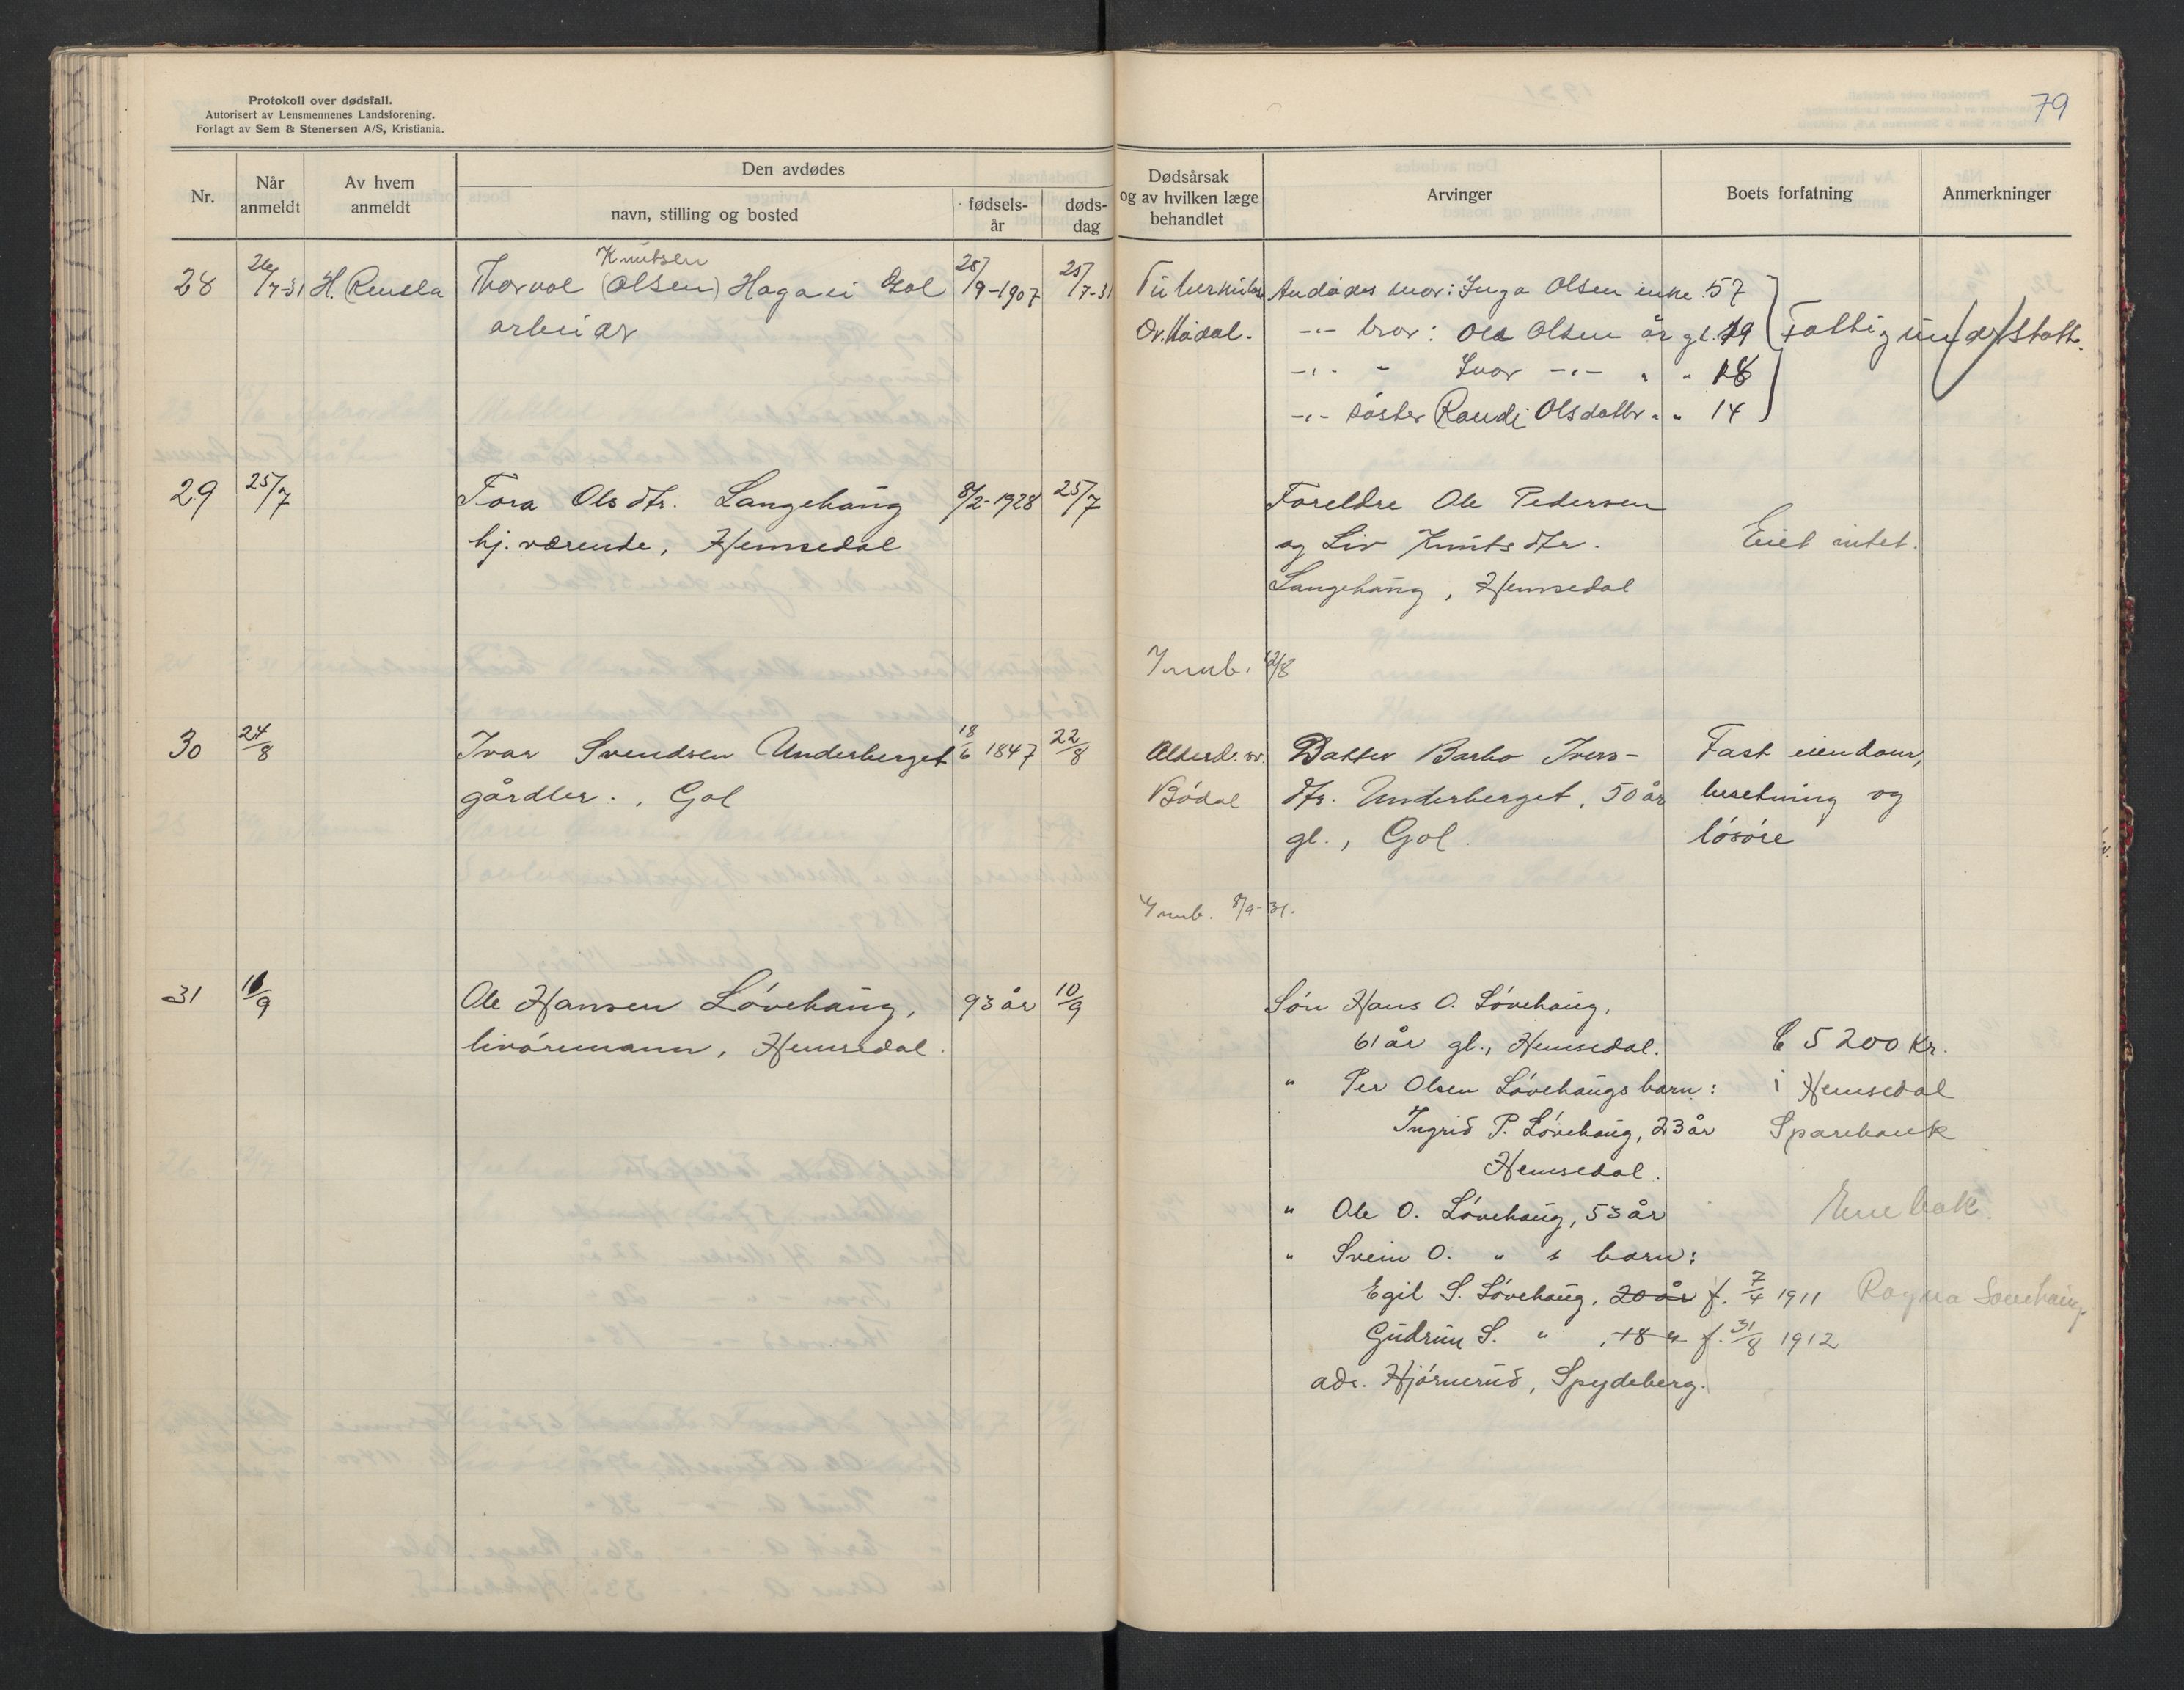 Protokoll over dødsfall.
Autorisert av Lensmennenes Landsforening.
Forlagt av Sem & Stenersen A/S, Kristiania.
79
Nr.
Når anmeldt
Av hvem anmeldt
Den avdødes
navn, stilling og bosted
fødsels-år
døds-dag
Dødsårsak og av hvilken læge behandlet
Arvinger
Boets forfatning
Anmerkninger
28 26/7-31 Knutsen
Thorvol (Olsen) Haga i Gol 25/7-31
arbeider
Tuberkulos
Avdødes mor: Inga Olsen enke 57
-"- bror: Ola Olsen år gl. 19
-"- " Ivar -"- " " 18
-"- søster Randi Olsdatter " " 14
Fattigunderstøtt.
29 25/7 Tora Olsdtr. Langehaug 8/2-1928 25/7
hj. værende, Hemsedal
Foreldre Ole Pedersen
og Liv Knutsdtr.
Langehaug, Hemsedal
Eiet intet.
30 24/8 Ivar Svendsen Underberget 18/6 1847 22/8
gårdbr., Gol
Alderd. sv.
Bødal
Datter Barbo Ivers-
dtr. Underberget, 50 år
gl., Gol.
Fast eiendom,
besetning og
løsøre
31 Ole Hansen Løvehaug, 93 år 10/9
livøremann, Hemsedal.
Søn Hans O. Løvehaug,
61 år gl., Hemsedal.
" Per Olsen Løvehaugs barn:
Ingrid P. Løvehaug, 23 år
Hemsedal.
" Ole O. Løvehaug, 53 år
" Svein O. " s barn:
Egil S. Løvehaug, 20 år f. 7/4 1911
Gudrun S. " , 18 " f. 31/8 1912
adr. Hjørnerud, Spydeberg.
5200 kr.
i Hemsedal
Sparebank
Enebak.
Ragna Løvehaug